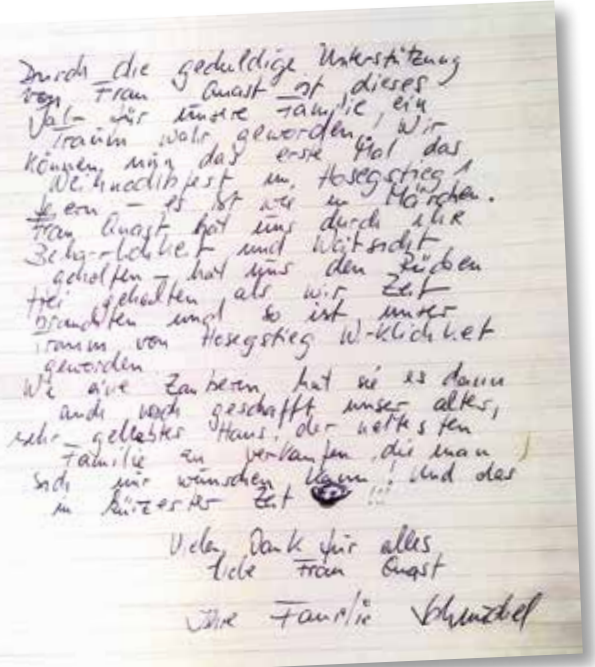 Durch die geduldige Unterstützung
von Frau Quast ist dieses
Jahr für unsere Familie ein
Traum wahr geworden. Wir
können nun das erste Mal das
Weihnachtsfest im Hosegstieg 1
feiern – es ist wie im Märchen.
Frau Quast hat uns durch ihre
Beharrlichkeit und Weitsicht
geholfen – hat uns den Rücken
frei gehalten als wir Zeit
brauchten und so ist unser
Traum vom Hosegstieg Wirklichkeit
geworden.
Wie eine Zauberin hat sie es dann
auch noch geschafft unser altes,
sehr geliebtes Haus, der nettesten
Familie zu verkaufen, die man
sich nur wünschen kann! Und das
in kürzester Zeit !!!
Vielen Dank für alles
liebe Frau Quast
Ihre Familie